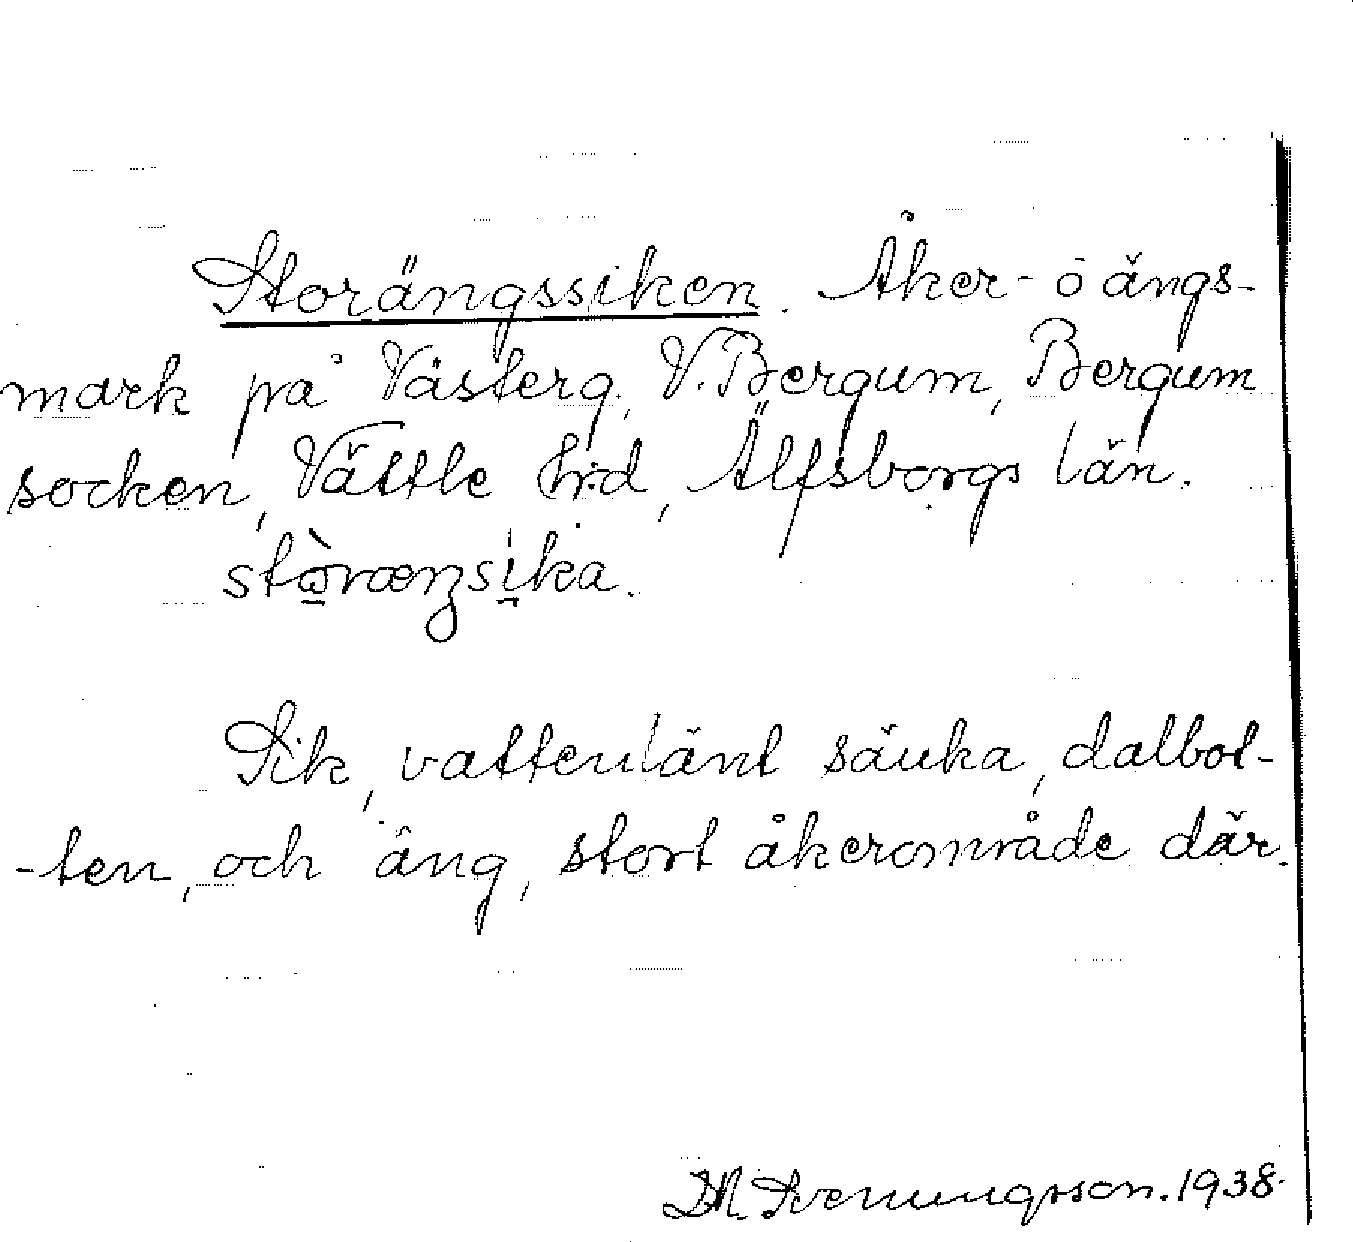 Storängssiken. Åker- o ängs-
mark på Västerg., V. Bergum, Bergum
socken, Vättle hrd, Älfsborgs län.
stòrængsika.
Sik, vattenlänt sänka, dalbot-
-ten, och äng, stort åkerområde där.
Svenungsson. 1938.